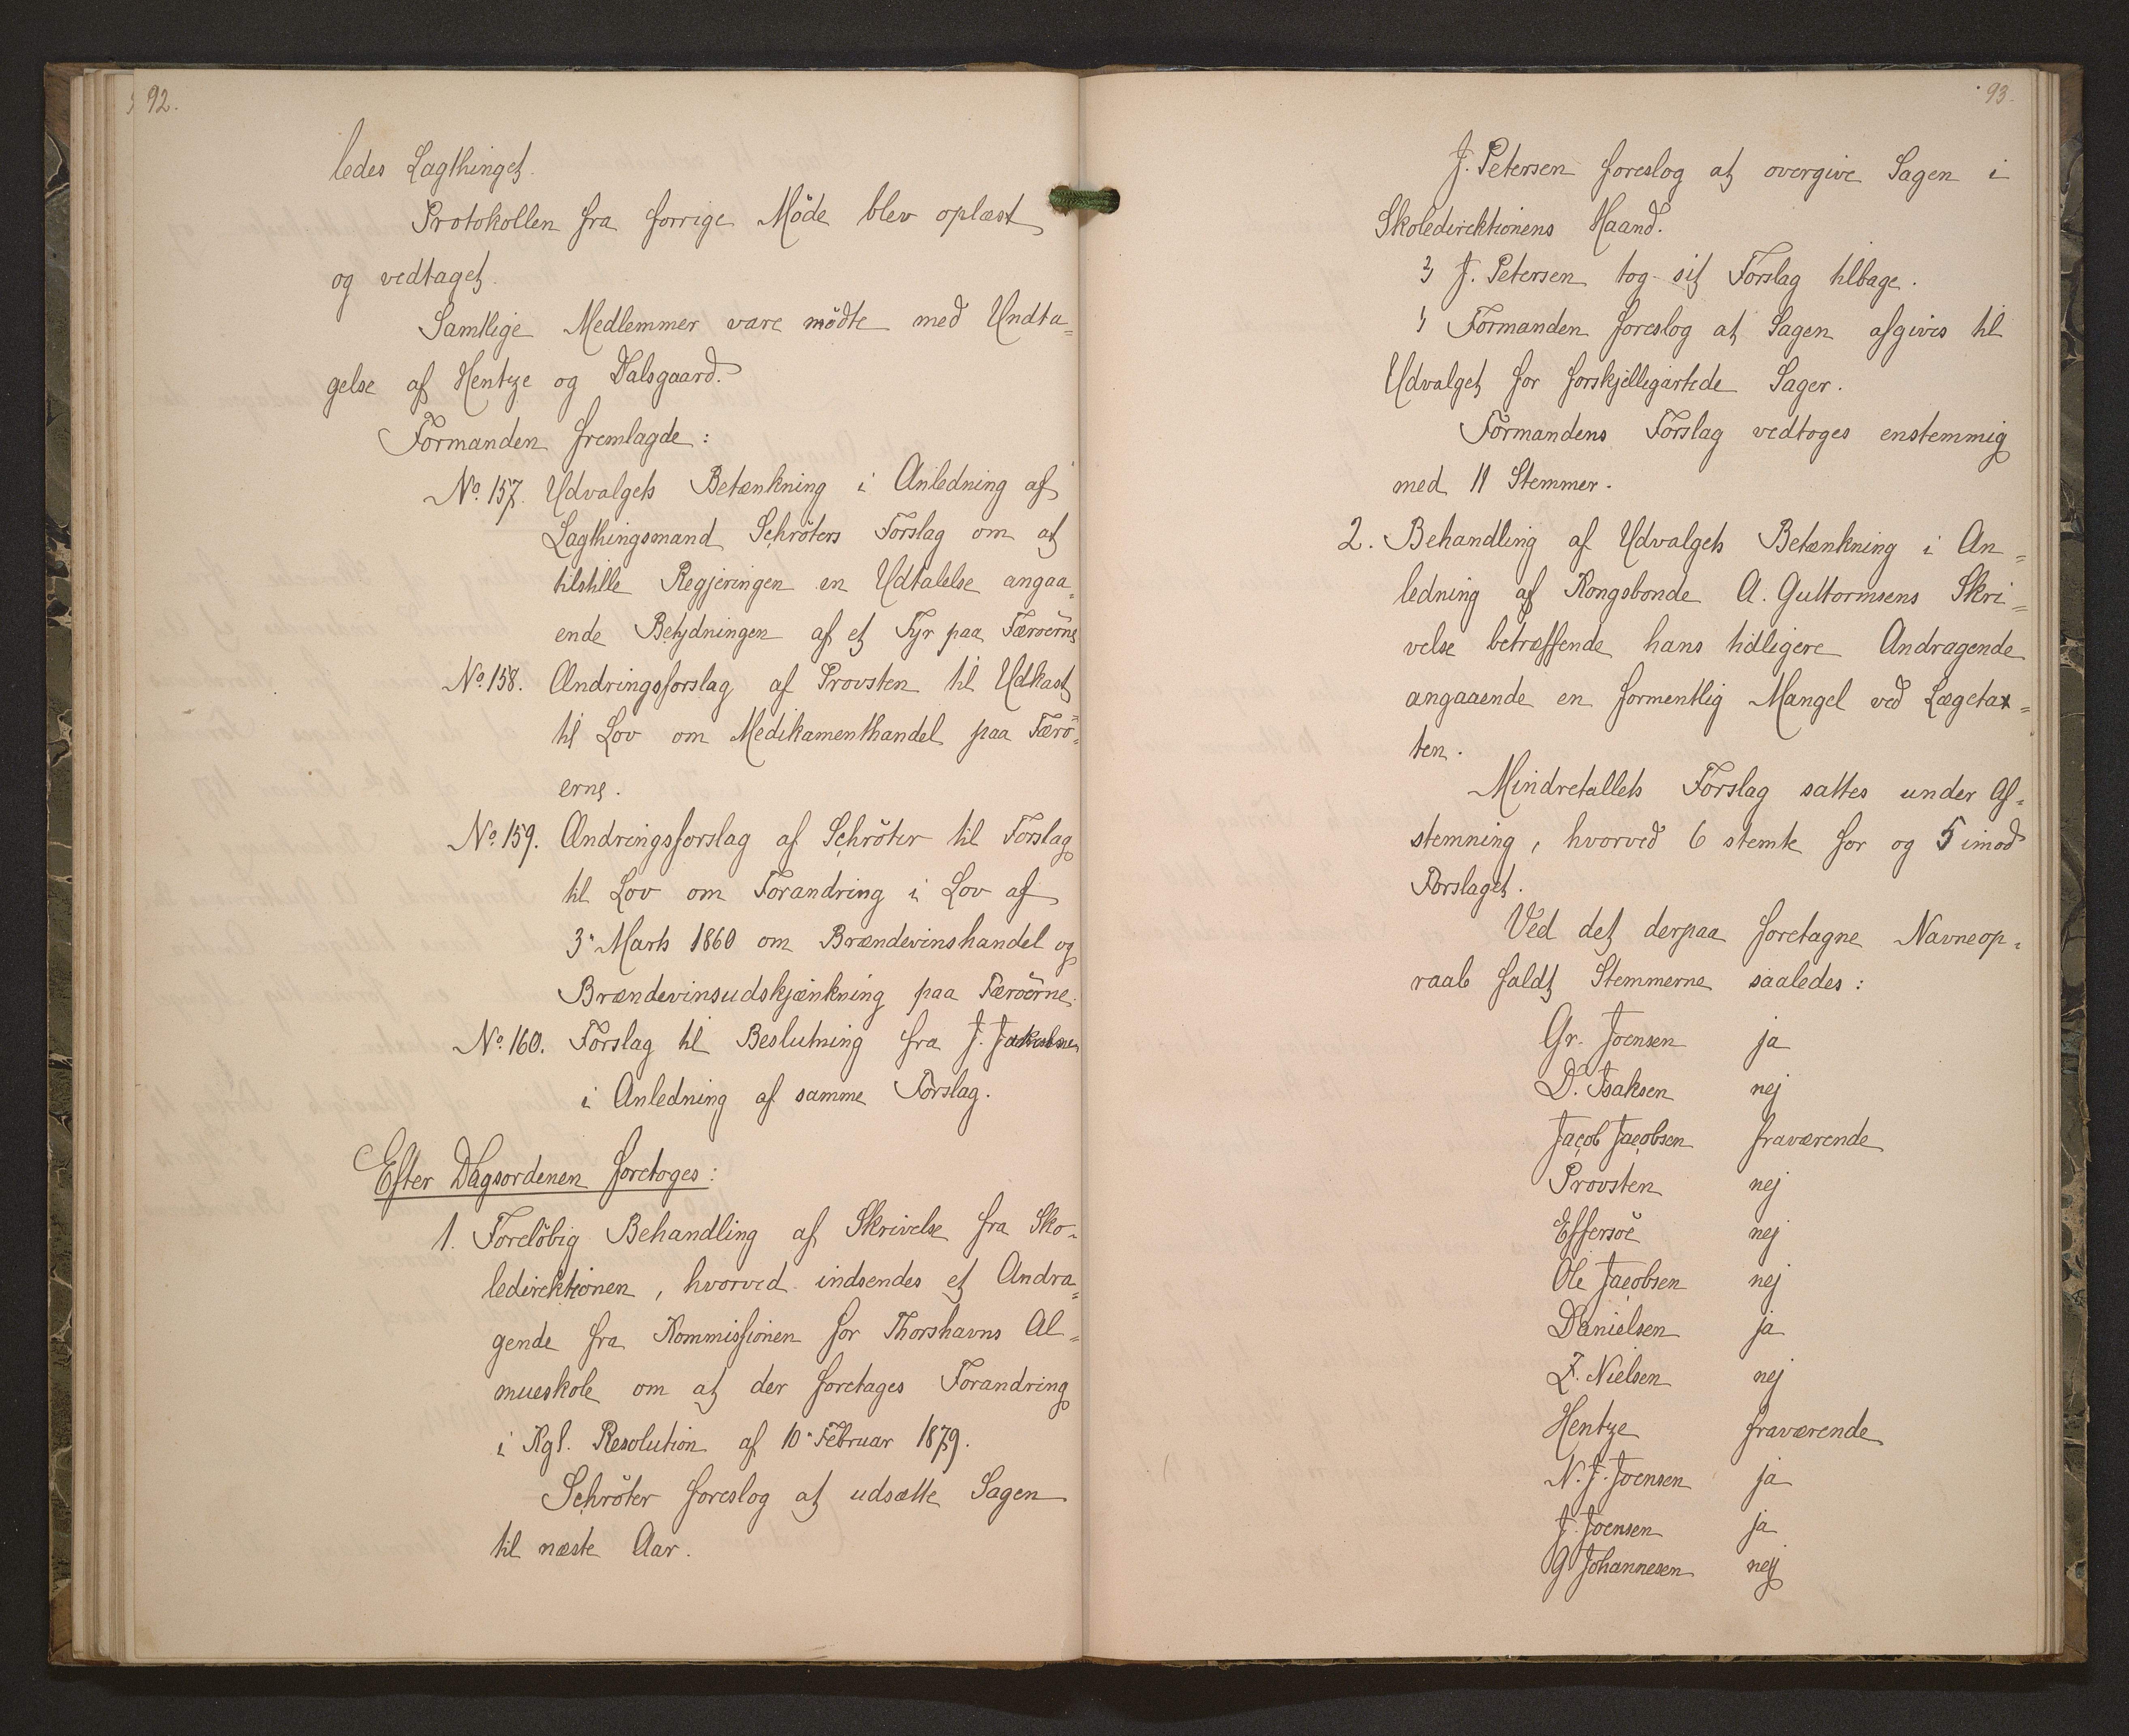 92.
ledes Lagthinget.
Protokollen fra forrige Möde blev oplæst
og vedtaget.
Samtlige Medlemmer vare mödte med Undta=
gelse af Hentze og Dalsgaard.
Formanden fremlagde:
No. 157. Udvalgets Betænkning i Anledning af
Lagthingsmand Schröters Forslag om at
tilstille Regjeringen en Udtalelse angaa=
ende Betydningen af et Fyr paa Færöerne
No. 158. Ændringsforslag af Provsten til Udkast
til Lov om Medikamenthandel paa Færö=
erne.
No. 159. Ændringsforslag af Schröter til Forslag
til Lov om Forandring i Lov af
3. Marts 1860 om Brændevinshandel og
Brændevinsudskjænkning paa Færöerne.
No. 160. Forslag til Beslutning fra J. Jakobsen
i Anledning af samme Forslag.
Efter Dagsordenen foretoges:
1. Forelöbig Behandling af Skrivelse fra Sko=
ledirektionen, hvorved indsendes et Andra=
gende fra Kommissionen for Thorshavns Al=
mueskole om at der foretages Forandring
i Kgl. Resolution af 10. Februar 1879.
Schröter foreslog at udsætte Sagen
til næste Aar.
93.
J. Petersen foreslog at overgive Sagen i
Skoledirektionens Haand.
J. Petersen tog sit Forslag tilbage.
Formanden foreslog at Sagen afgives til
Udvalget for forskjelligartede Sager.
Formandens Forslag vedtoges enstemmig
med 11 Stemmer.
2. Behandling af Udvalgets Betænkning i An=
ledning af Kongsbonde A. Guttormsens Skri=
velse betræffende hans tidligere Andragende
angaaende en formentlig Mangel ved Lægetax=
ten.
Mindretallets Forslag sattes under Af=
stemning, hvorved 6 stemte for og 5 imod
Forslaget.
Ved det derpaa foretagne Navneop=
raab faldt Stemmerne saaledes:
Gr. Joensen ja
D. Isaksen nej
Jacob Jacobsen fraværende
Provsten nej
Effersöe nej
Ole Jacobsen nej
Danielsen ja
Z. Nielsen nej
Hentze fraværende
N. J. Joensen ja
J. Joensen ja
G Johannesen nej